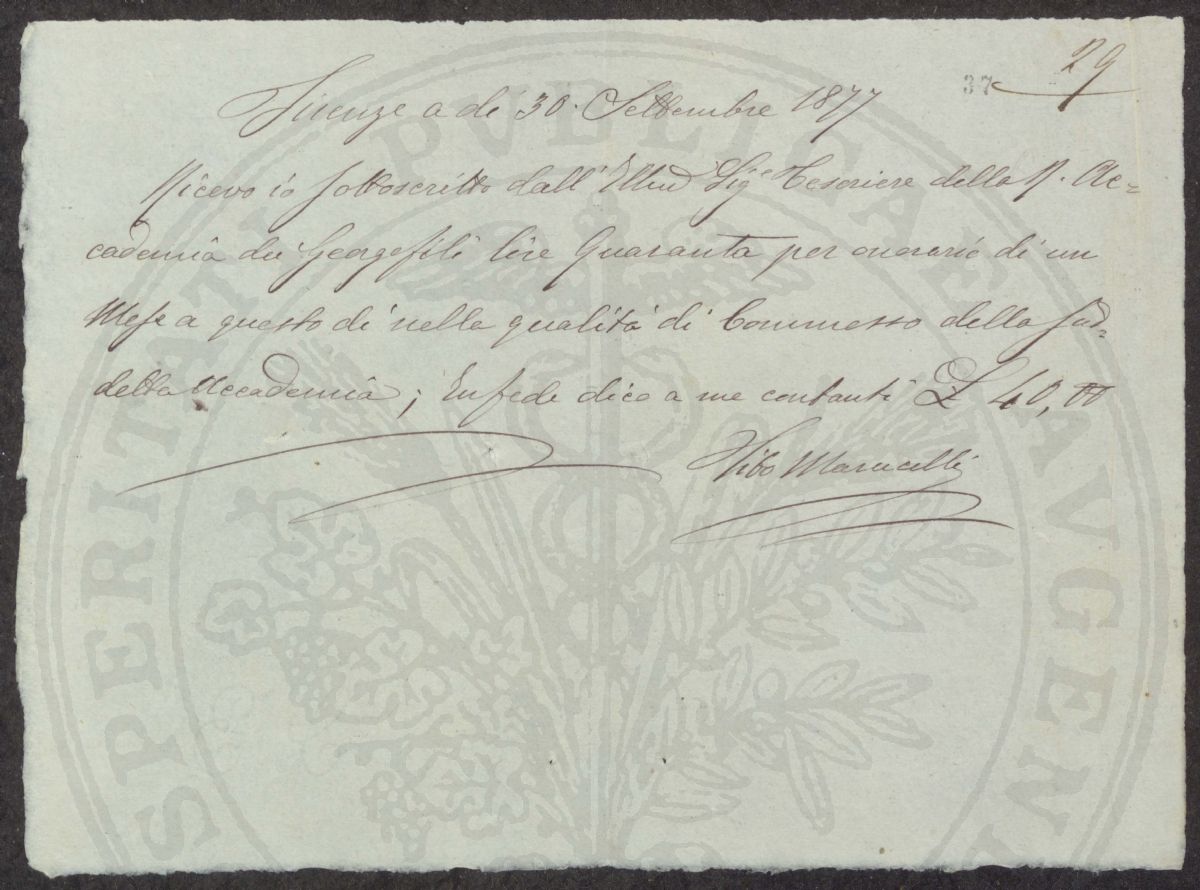 29
37
Firenze a dì 30. Settembre 1877
Ricevo io sottoscritto dall' Illmo Sigre Tesoriere della R. Ac=
cademia dei Georgofili lire Quaranta per onorario di un
Mese a questo dì nella qualità di Commesso della Sud=
detta Accademia; In fede dico a me contanti £ 40,00
Vibo Marucelli
SPERITATI PVBLICAE AVGEN